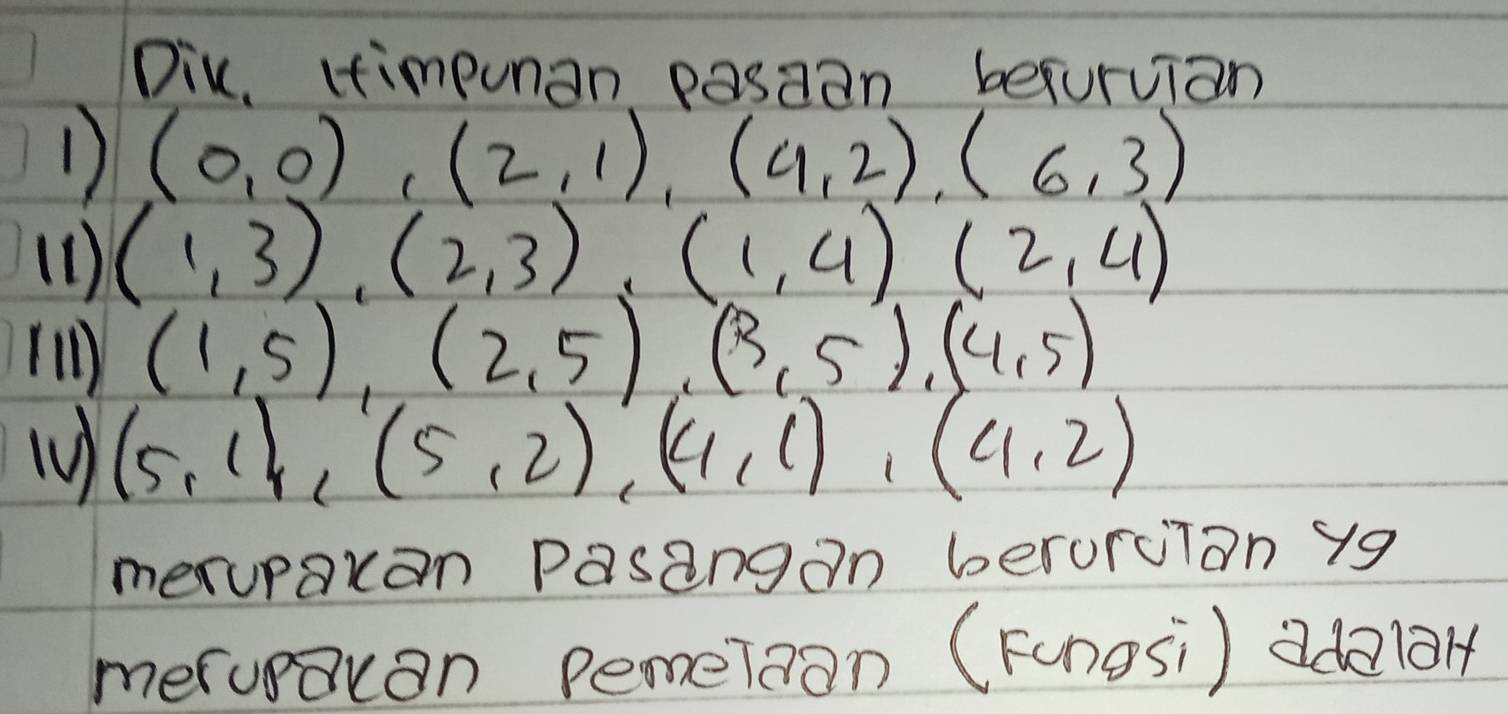 Dik. Himpunan pasaan berurutan
I) (0,0), (2,1), (4,2), (6,3)
II) (1,3), (2,3), (1,4) (2,4)
III) (1,5), (2,5), (3,5), (4,5)
IV) (5,1), (5,2), (4,1), (4,2)
merupakan pasangan berurutan yg
merupakan pemetaan (Fungsi) adalah